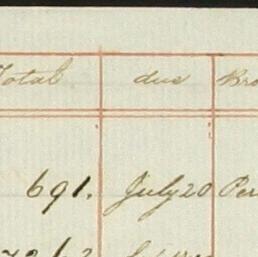 Total due Bro
691. July 20 Per